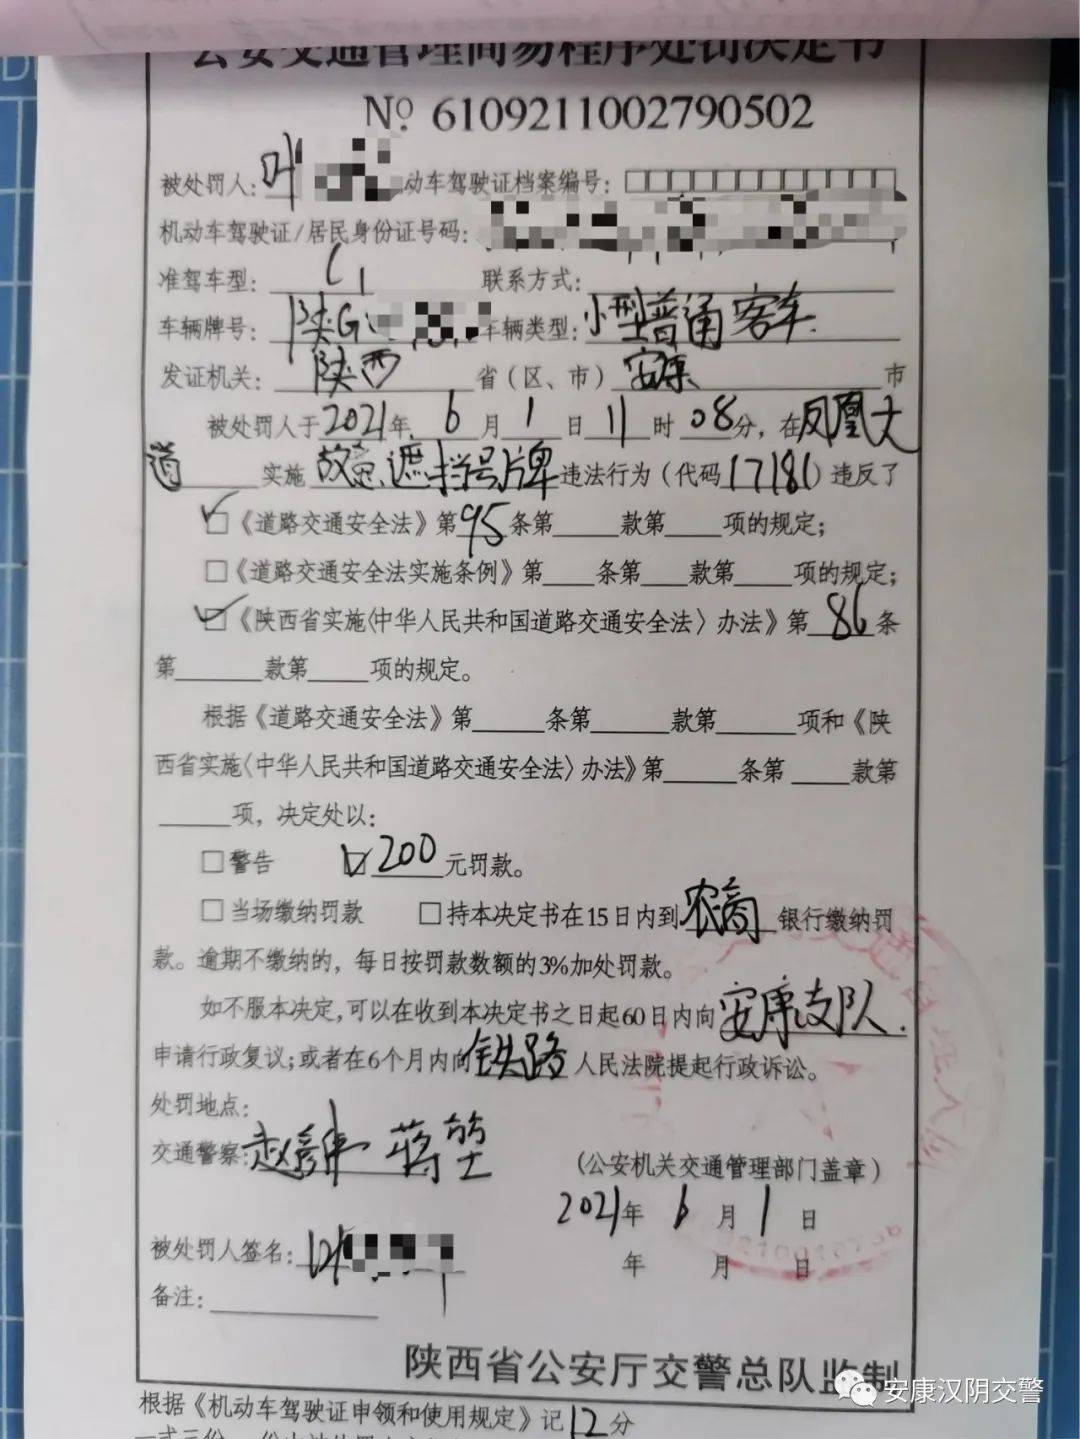 公安交通管理简易程序处罚决定书
№ 6109211002790502
被处罚人: 叶 动车驾驶证档案编号:
机动车驾驶证/居民身份证号码:
准驾车型: C1 联系方式:
车辆牌号: 陕G 车辆类型: 小型普通客车
发证机关: 陕西 省(区、市) 安康 市
被处罚人于2021年 6 月 1 日 11 时 08分, 在凤凰大
道 实施 故意遮挡号牌 违法行为(代码17181)违反了
☑《道路交通安全法》第95条第 款第 项的规定;
□《道路交通安全法实施条例》第 条第 款第 项的规定;
☑《陕西省实施〈中华人民共和国道路交通安全法〉办法》第 86 条
第 款第 项的规定。
根据《道路交通安全法》第 条第 款第 项和《陕
西省实施〈中华人民共和国道路交通安全法〉办法》第 条第 款第
项, 决定处以:
□警告 ☑200元罚款。
□当场缴纳罚款 □持本决定书在15日内到 农商 银行缴纳罚
款。逾期不缴纳的, 每日按罚款数额的3%加处罚款。
如不服本决定, 可以在收到本决定书之日起60日内向 安康支队
申请行政复议; 或者在6个月内向 铁路 人民法院提起行政诉讼。
处罚地点:
交通警察: 赵 蒋
(公安机关交通管理部门盖章)
2021年 6 月 1 日
被处罚人签名: 叶
年 月 日
备注:
陕西省公安厅交警总队监制
安康汉阴交警
根据《机动车驾驶证申领和使用规定》记12分